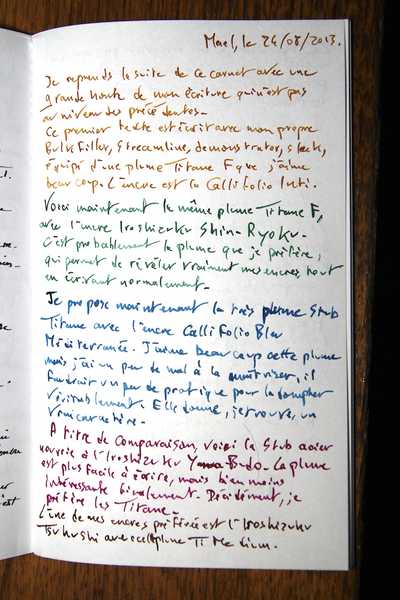 le 24/08/2013.
Je reprends la suite de ce carnet avec une
grande honte de mon écriture qui n'est pas
au niveau des précédentes.
Ce premier texte est écrit avec mon propre
Bulkfiller, Streamline, demonstrator, s
équipé d'une plume Titane F que j'aime
beaucoup. L'encre est la Callifolio Inti.
Voici maintenant la même plume Titane F,
avec l'encre Iroshizuku Shin-Ryoku.
C'est probablement la plume que je préfère,
qui permet de révéler vraiment mes encres tout
en écrivant normalement.
Je propose maintenant la très plume Stub
Titane avec l'encre Callifolio Bleu
Méditerranée. J'aime beaucoup cette plume
mais j'ai un peu de mal à la maîtriser, il
faudrait un peu de pratique pour la dompter
véritablement. Elle donne, je trouve, un
vrai caractère.
A titre de comparaison, voici la Stub acier
nourrie à l'Iroshizuku Yama-Budo. La plume
est plus facile à écrire, mais bien moins
intéressante finalement. Décidément, je
préfère les Titane.
L'une de mes encres préférées est l'Iroshizuku
Tsukushi avec cette plume Ti Medium.